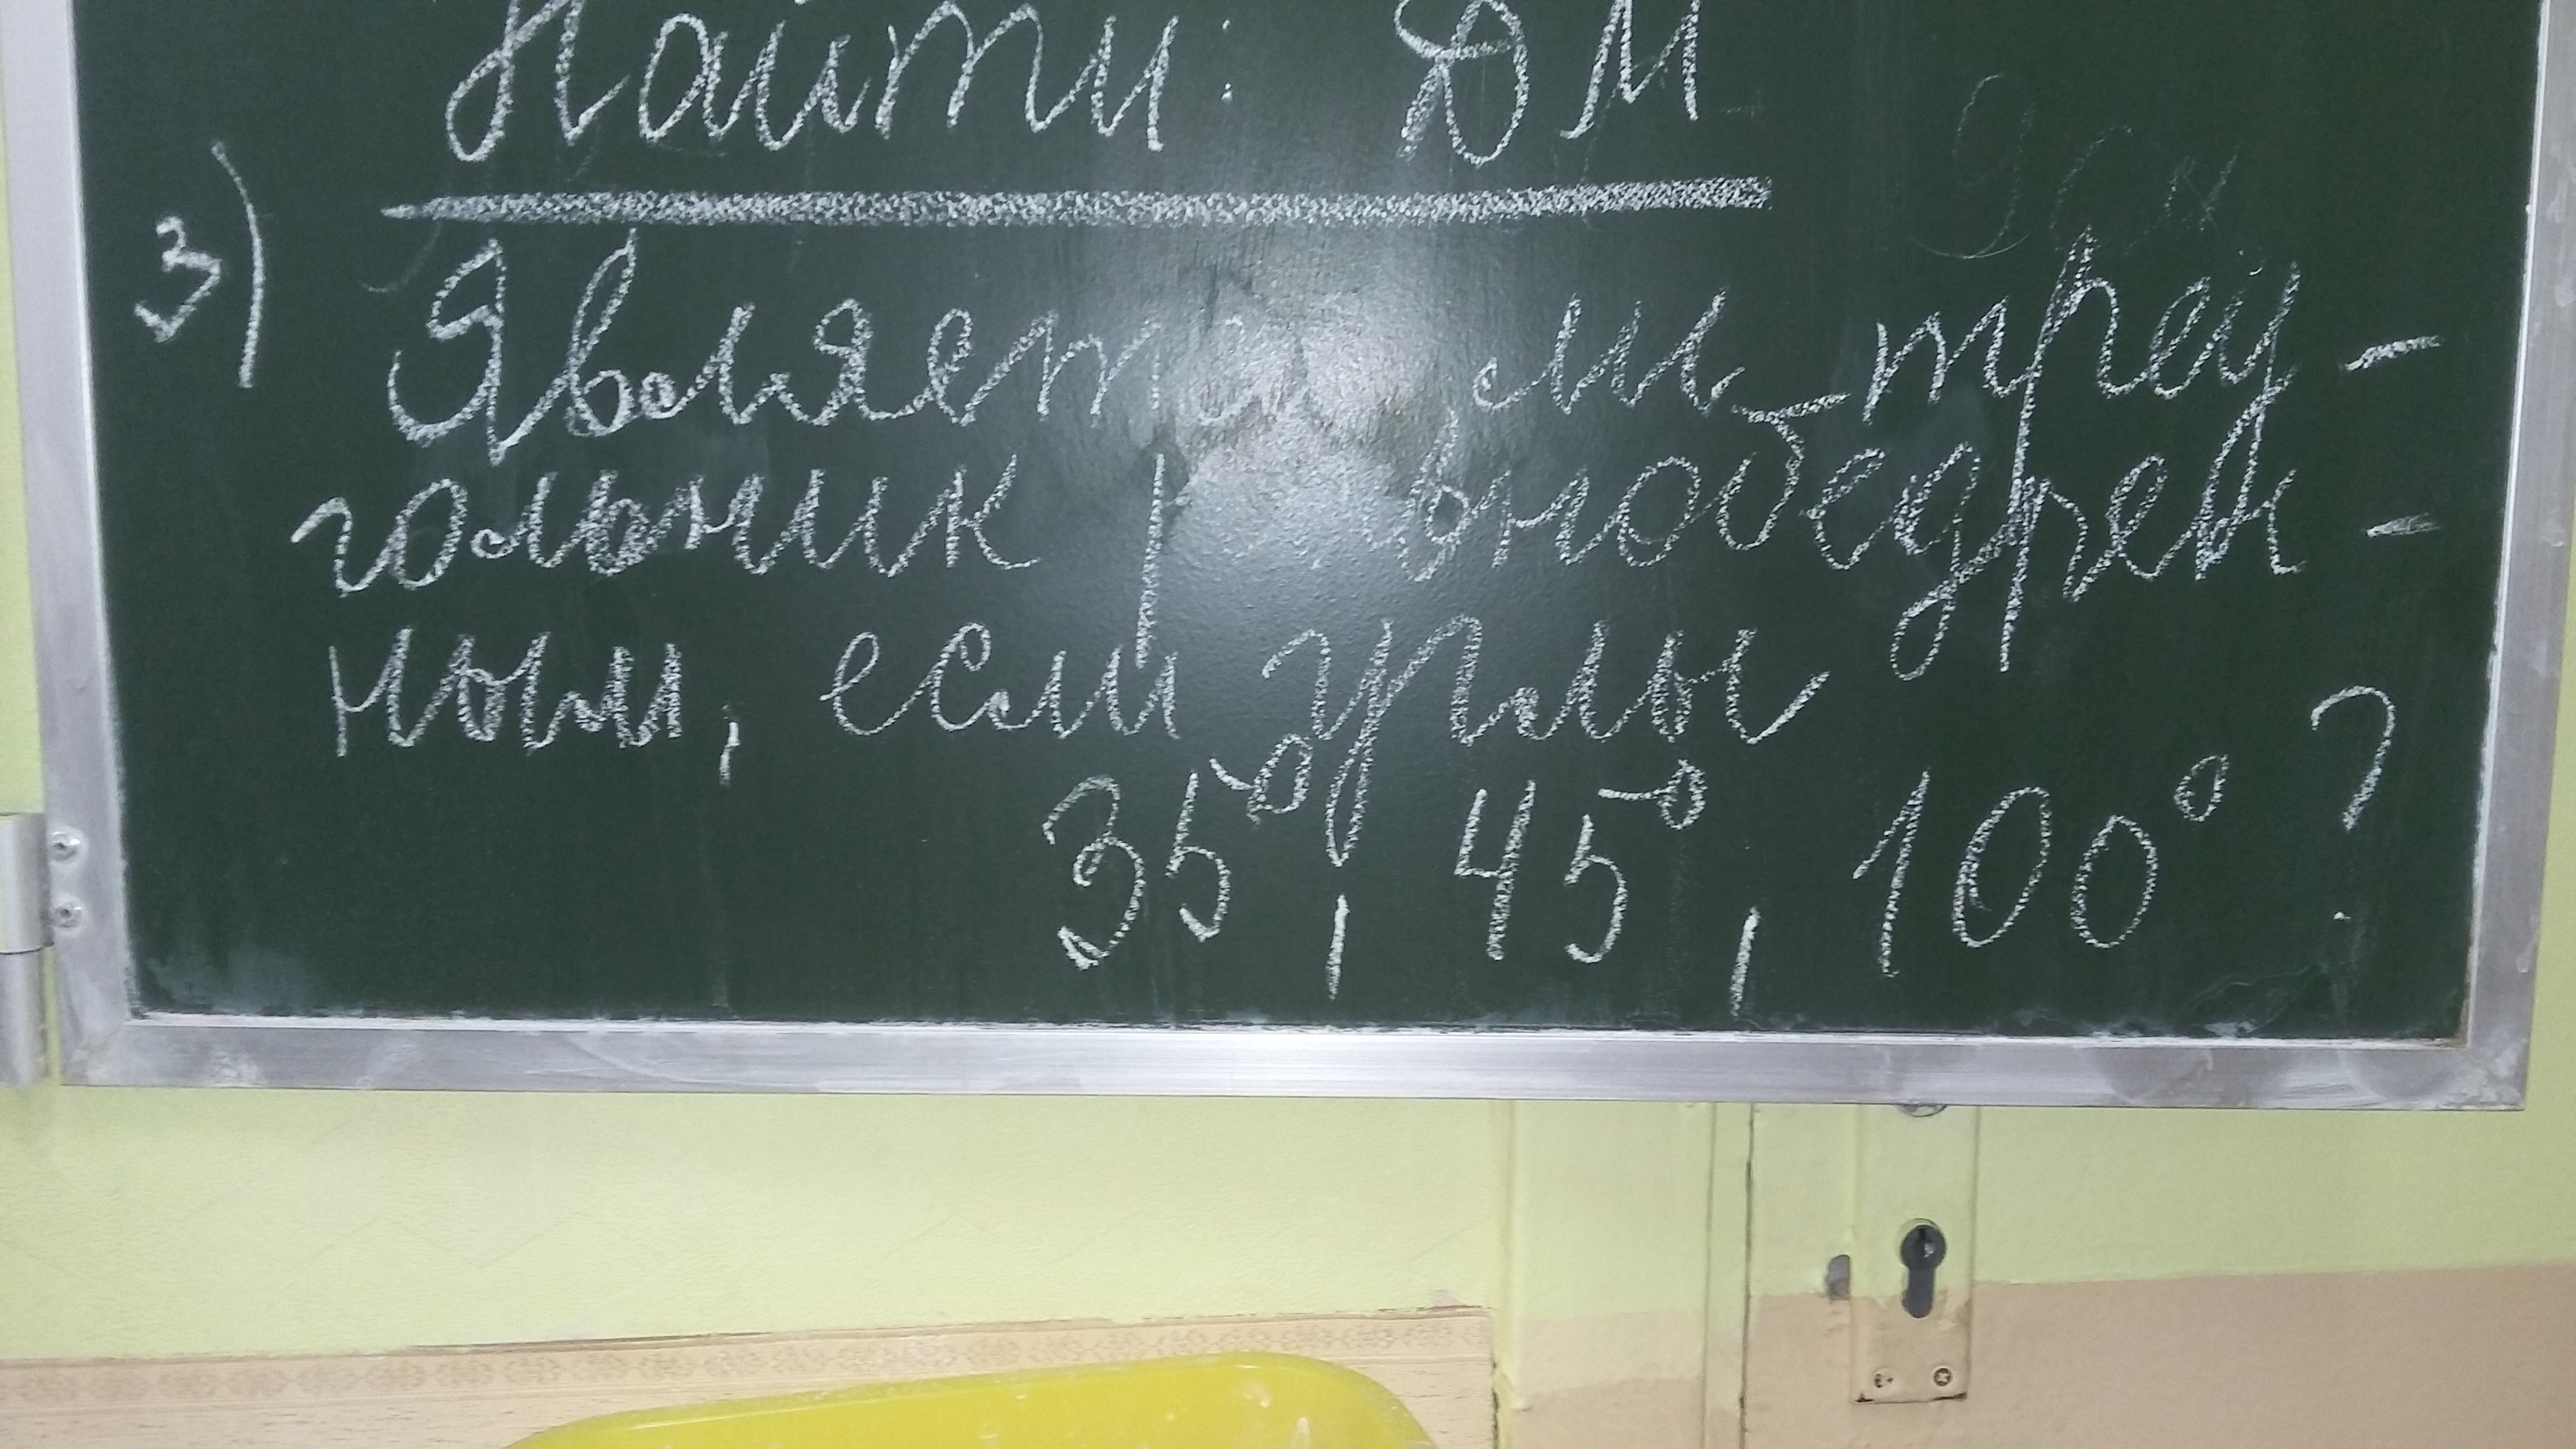 Найти: DM
3) Является ли треу-
гольник равнобедрен-
ным, если углы
35°, 45°, 100°?